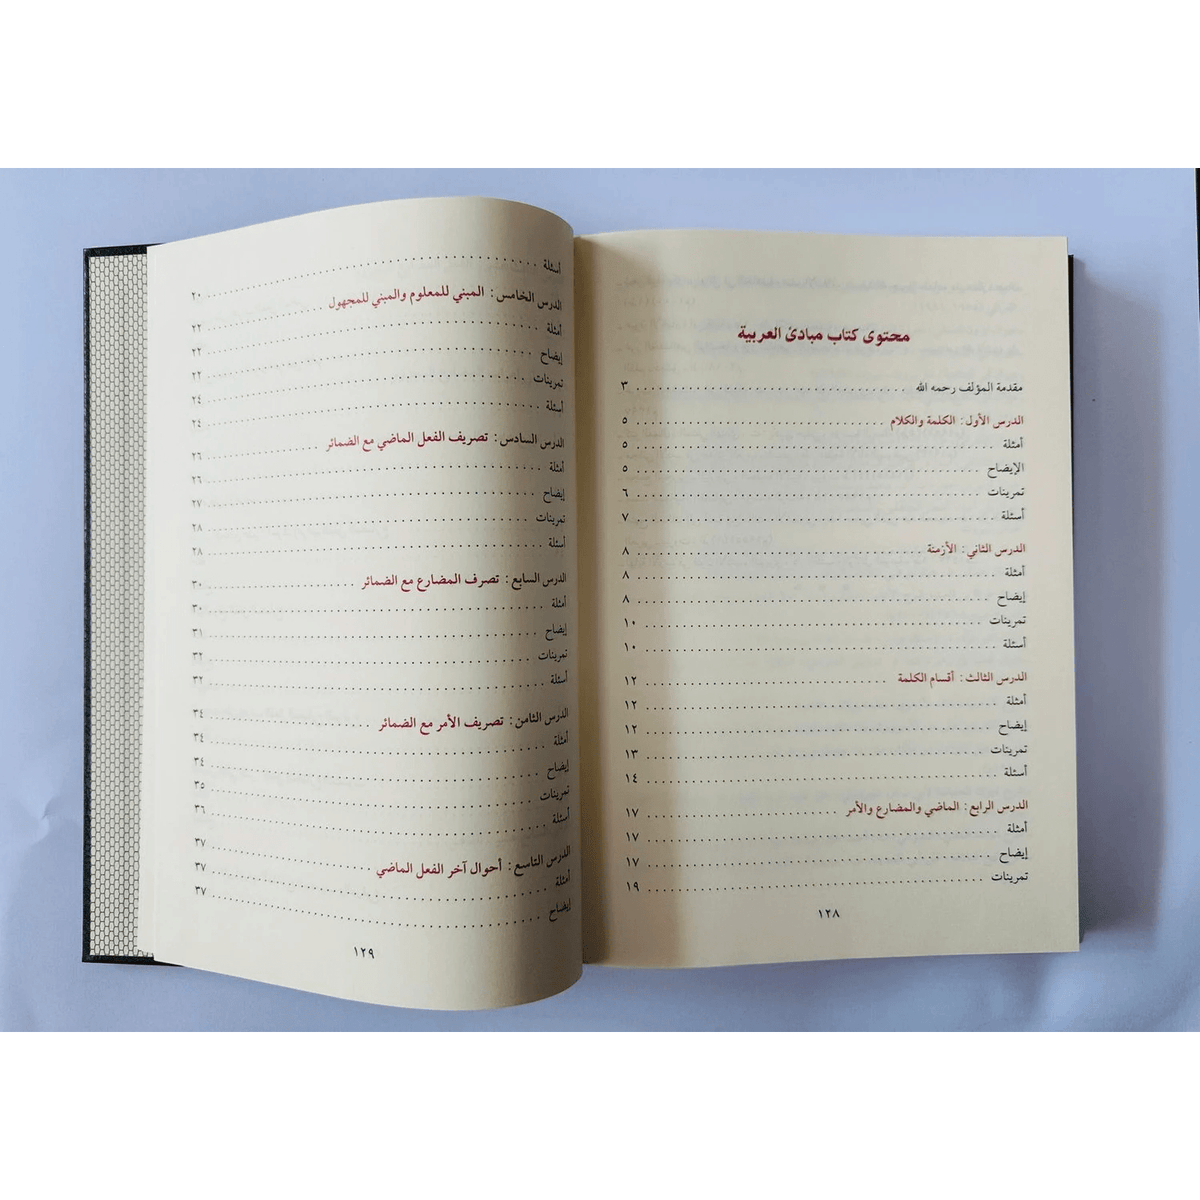 محتوى كتاب مبادئ العربية
مقدمة المؤلف رحمه الله ........ ٣
الدرس الأول: الكلمة والكلام ........ ٥
أمثلة ........ ٥
الإيضاح ........ ٥
تمرينات ........ ٦
أسئلة ........ ٧
الدرس الثاني: الأزمنة ........ ٨
أمثلة ........ ٨
إيضاح ........ ٨
تمرينات ........ ١٠
أسئلة ........ ١٠
الدرس الثالث: أقسام الكلمة ........ ١٢
أمثلة ........ ١٢
إيضاح ........ ١٢
تمرينات ........ ١٣
أسئلة ........ ١٤
الدرس الرابع: الماضي والمضارع والأمر ........ ١٧
أمثلة ........ ١٧
إيضاح ........ ١٧
تمرينات ........ ١٩
١٢٨
أسئلة ........ ٢٠
الدرس الخامس: المبني للمعلوم والمبني للمجهول ........ ٢٢
أمثلة ........ ٢٢
إيضاح ........ ٢٢
تمرينات ........ ٢٤
أسئلة ........ ٢٤
الدرس السادس: تصريف الفعل الماضي مع الضمائر ........ ٢٦
أمثلة ........ ٢٦
إيضاح ........ ٢٧
تمرينات ........ ٢٨
أسئلة ........ ٢٨
الدرس السابع: تصرف المضارع مع الضمائر ........ ٣٠
أمثلة ........ ٣٠
إيضاح ........ ٣١
تمرينات ........ ٣٢
أسئلة ........ ٣٢
الدرس الثامن: تصريف الأمر مع الضمائر ........ ٣٤
أمثلة ........ ٣٤
إيضاح ........ ٣٤
تمرينات ........ ٣٥
أسئلة ........ ٣٦
الدرس التاسع: أحوال آخر الفعل الماضي ........ ٣٧
أمثلة ........ ٣٧
إيضاح ........ ٣٧
١٢٩